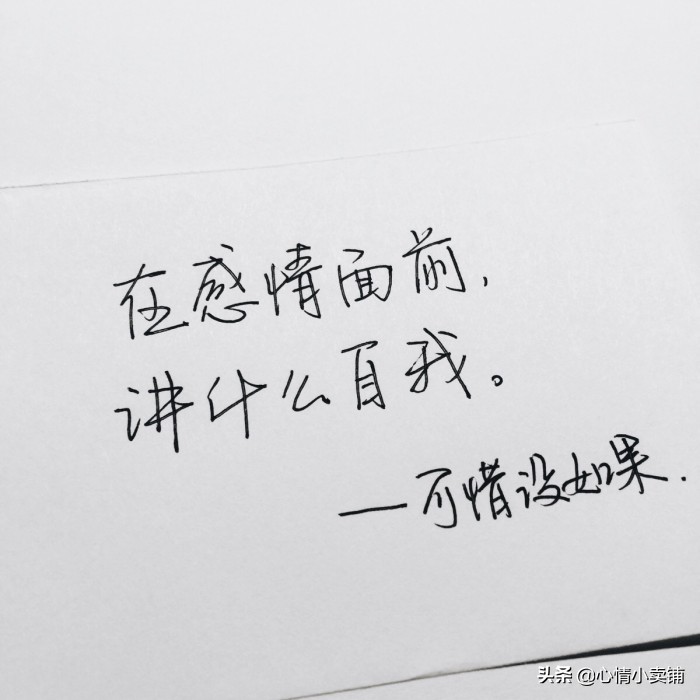 在感情面前,
讲什么自我。
—可惜没如果.
头条 @心情小卖铺